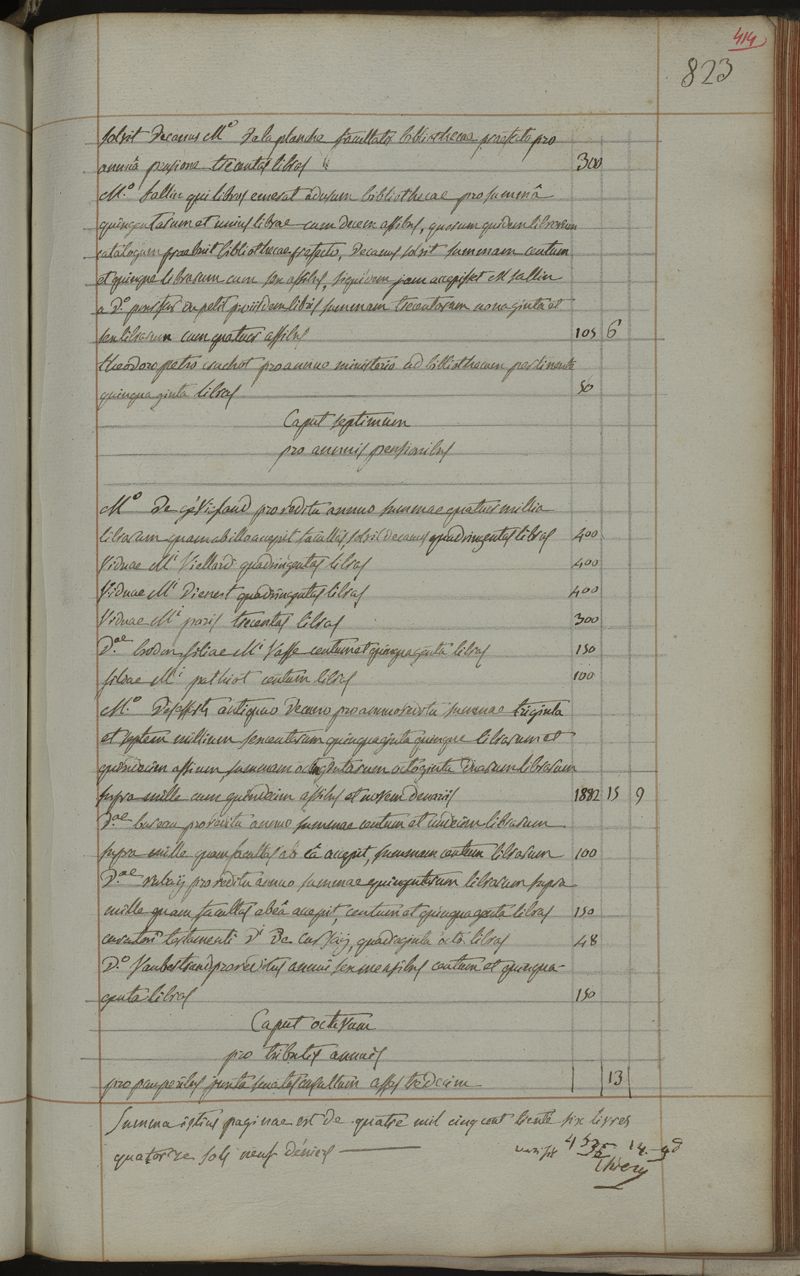 414
823
solvit Decanus M.º De la planche facultatis bibliothecae praefecto pro
annuâ pensione trecentas libras 300
M.º Sallin qui libros emerat ad usum bibliothecae pro summâ
quingentarum et unius librae cum decem assibus, quorum quidem librorum
catalogum praebuit bibliothecae praefecto, Decanus solvit summam centum
et quinque librarum cum sex assibus, siquidem jam accepisset M. Sallin
a D.º petit pro iisdem libris summam trecentarum nonaginta et
sex librarum cum quatuor assibus 105 6
theodoro petro cruchot pro annuo ministerio ad bibliothecam pertinente
quinquaginta libras 50
Caput septimum
pro annuis pensionibus
M.º De pro reditu annuo summae quatuor millia
librarum quam ab illo accepit facultas, solvit decanus quadringentas libras 400
Viduae M.i Viellard quadringentas libras 400
Viduae M.i Dienert quadringentas libras 400
Viduae M.i paris trecentas libras 300
D.ae filiae M.i Vasse centum et quinquaginta libras 150
filiae M.i pathiot centum libras 100
M.º Desessartz antiquo Decano pro annuo reditu summae triginta
et septem millium sexcentarum quinquaginta quinque librarum et
quindecim assium summam octingentarum octoginta duarum librarum
supra mille cum quindecim assibus et novem denariis 1882 15 9
D.ae bureau pro reditu annuo summae centum et undecim librarum
supra mille quam facultas ab eâ accepit, summam centum librarum 100
D.ae pro reditu annuo summae quingentarum librarum supra
mille quam facultas ab eâ accepit, centum et quinquaginta libras 150
curatori testamenti D.i De quadraginta octo libras 48
D.º pro reditus annui sex mensibus centum et quinqua-
ginta libras 150
Caput octavum
pro tributis annuis
pro pauperibus juxta senatus consultum asses tredecim 13
Summa istius paginae est de quatre mil cinquent trente six livres
quatorze sols neuf déniers 14 9d
Thiery